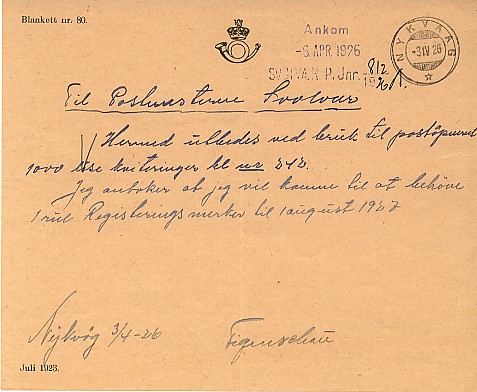 Blankett nr. 80.
Ankom
-6 APR. 1926
SVOLVÆR P. Jnr. 812
1926
NYKVAAG
-3 IV 26
Til Postmesterne Svolvær
Hermed utbedes ved bruk til postöpneri
1000 kvitteringer bl nr 242.
Jeg anböker at jeg vil komme til at behöve
1 rul Registreringsmerker til 1 august 1927
Nykvåg 3/4-26
Figenschau
Juli 1923.